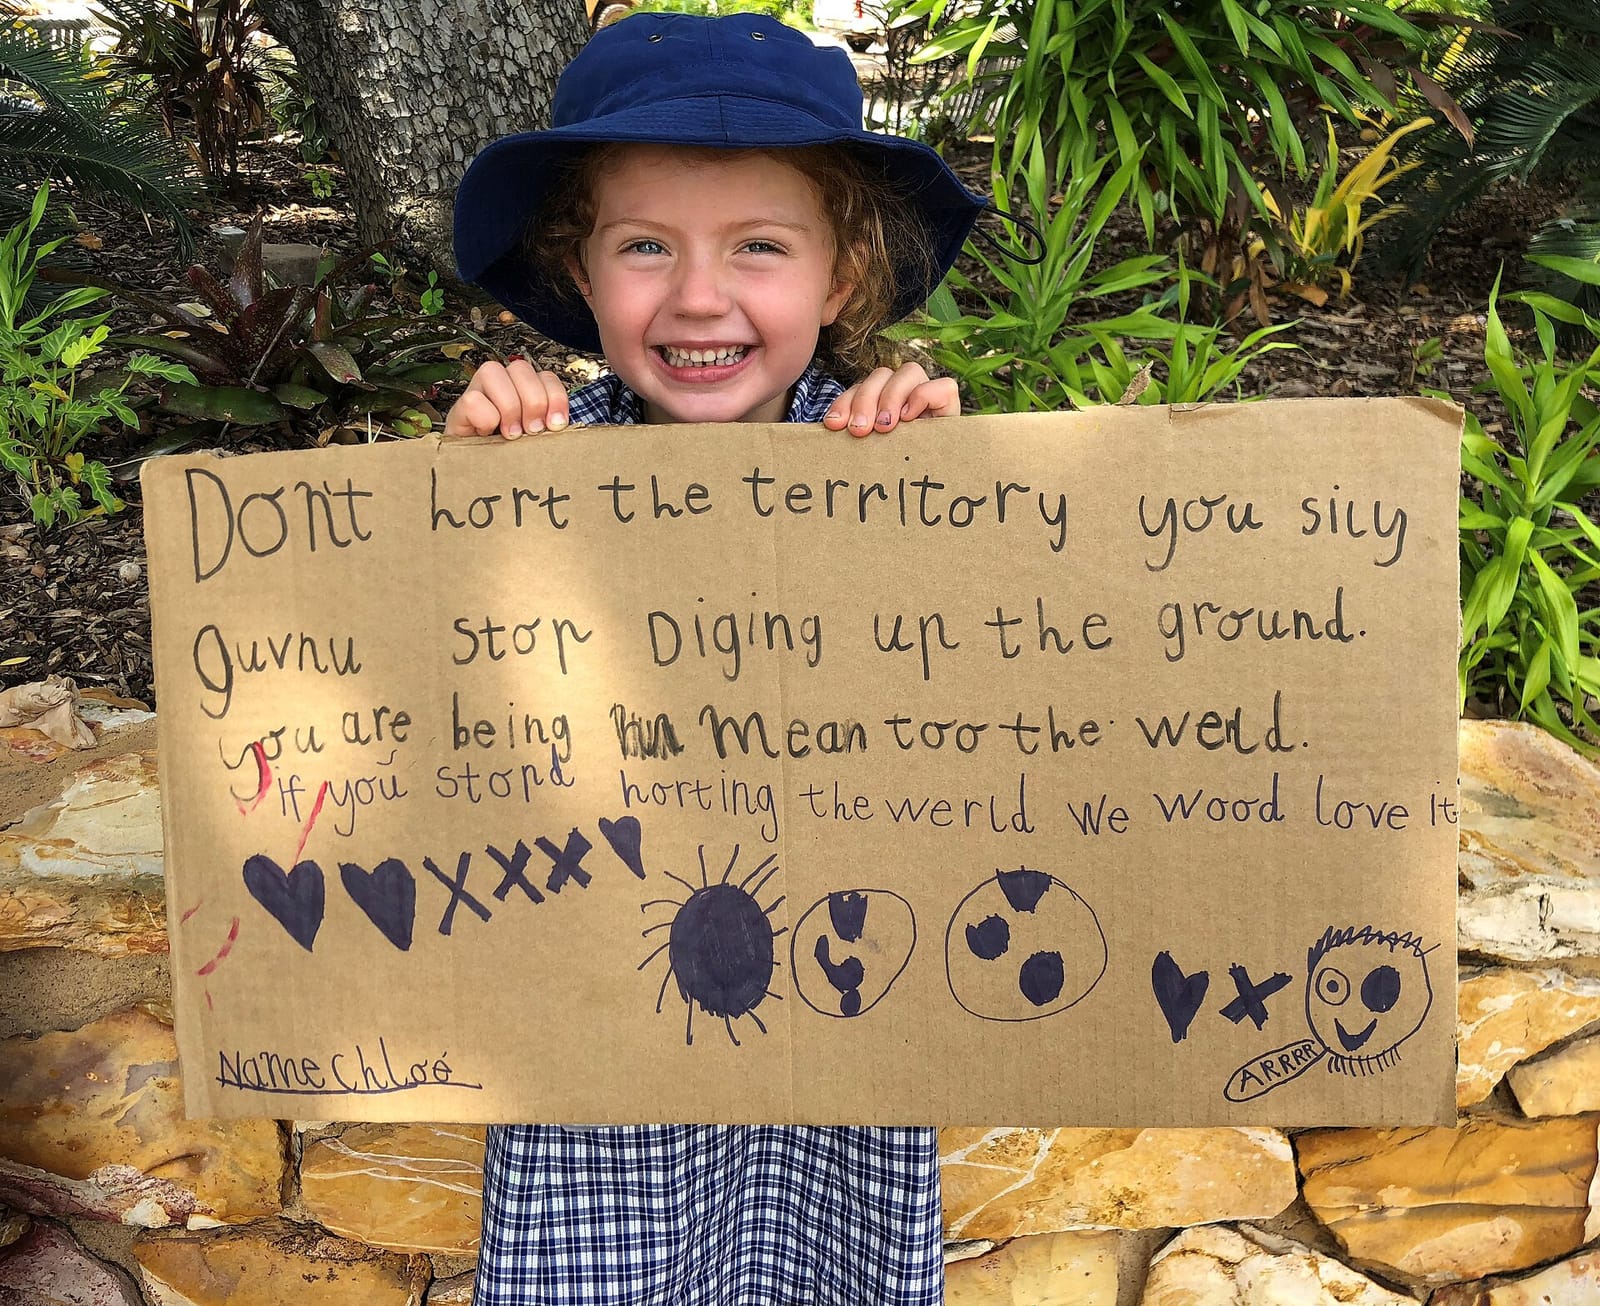 Don't hort the territory you sily
guvnu stop Diging up the ground.
you are being mean too the werld.
if you stopd horting the werld we wood love it
Name Chloé
ARRRR